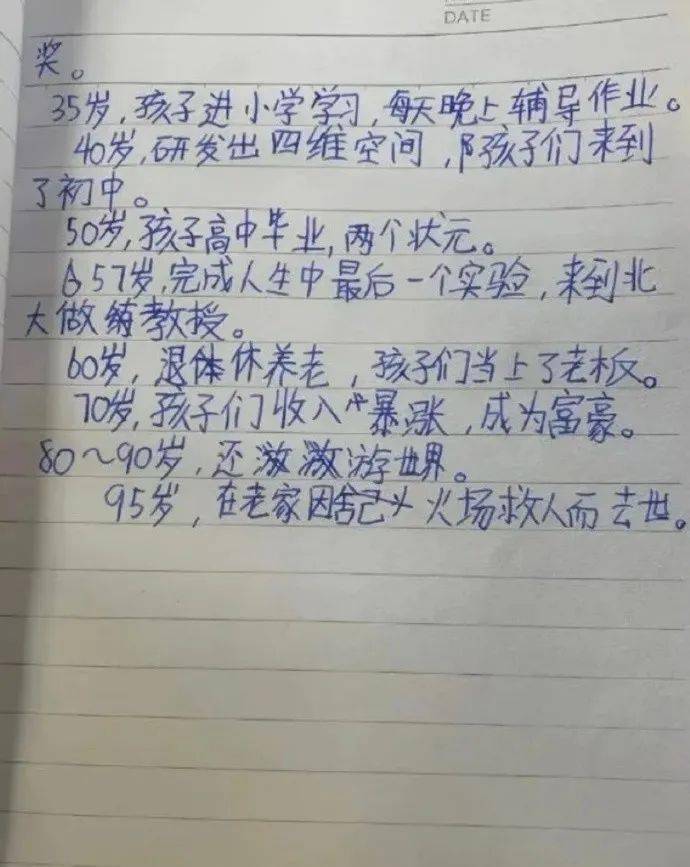 DATE
奖。
35岁,孩子进小学学习,每天晚上辅导作业。
40岁,研发出四维空间,孩子们来到
了初中。
50岁,孩子高中毕业,两个状元。
57岁,完成人生中最后一个实验,来到北
大做教授。
60岁,退休养老,孩子们当上了老板。
70岁,孩子们收入暴涨,成为富豪。
80~90岁,还游世界。
95岁,在老家因舍己火场救人而去世。